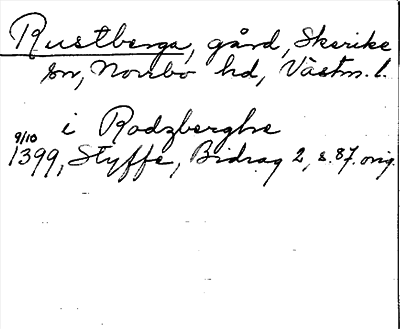 Rustberga, gård, Skerike
sn, Norrbo hd, Västm. l.
i Rodzberghe
9/10
1399, Styffe, Bidrag 2, s. 87. orig.